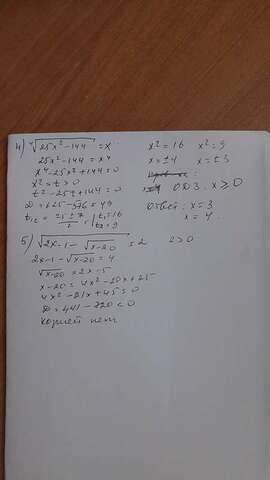 4) ⁴√25x²-144 = x
25x²-144 = x⁴
x⁴-25x²+144=0
x² = t > 0
t² - 25t + 144 = 0
D = 625 - 576 = 49
t₁,₂ = (25 ± 7)/2 = [t₁=16 t₂=9
x²=16 x²=9
x=±4 x=±3
ОДЗ: x ≥ 0
Ответ: x = 3
x = 4.
5) √2x-1-√x-20 = 2 2>0
2x-1-√x-20 = 4
√x-20 = 2x-5
x-20 = 4x²-20x+25
4x²-21x+45=0
D = 441 - 720 < 0
корней нет